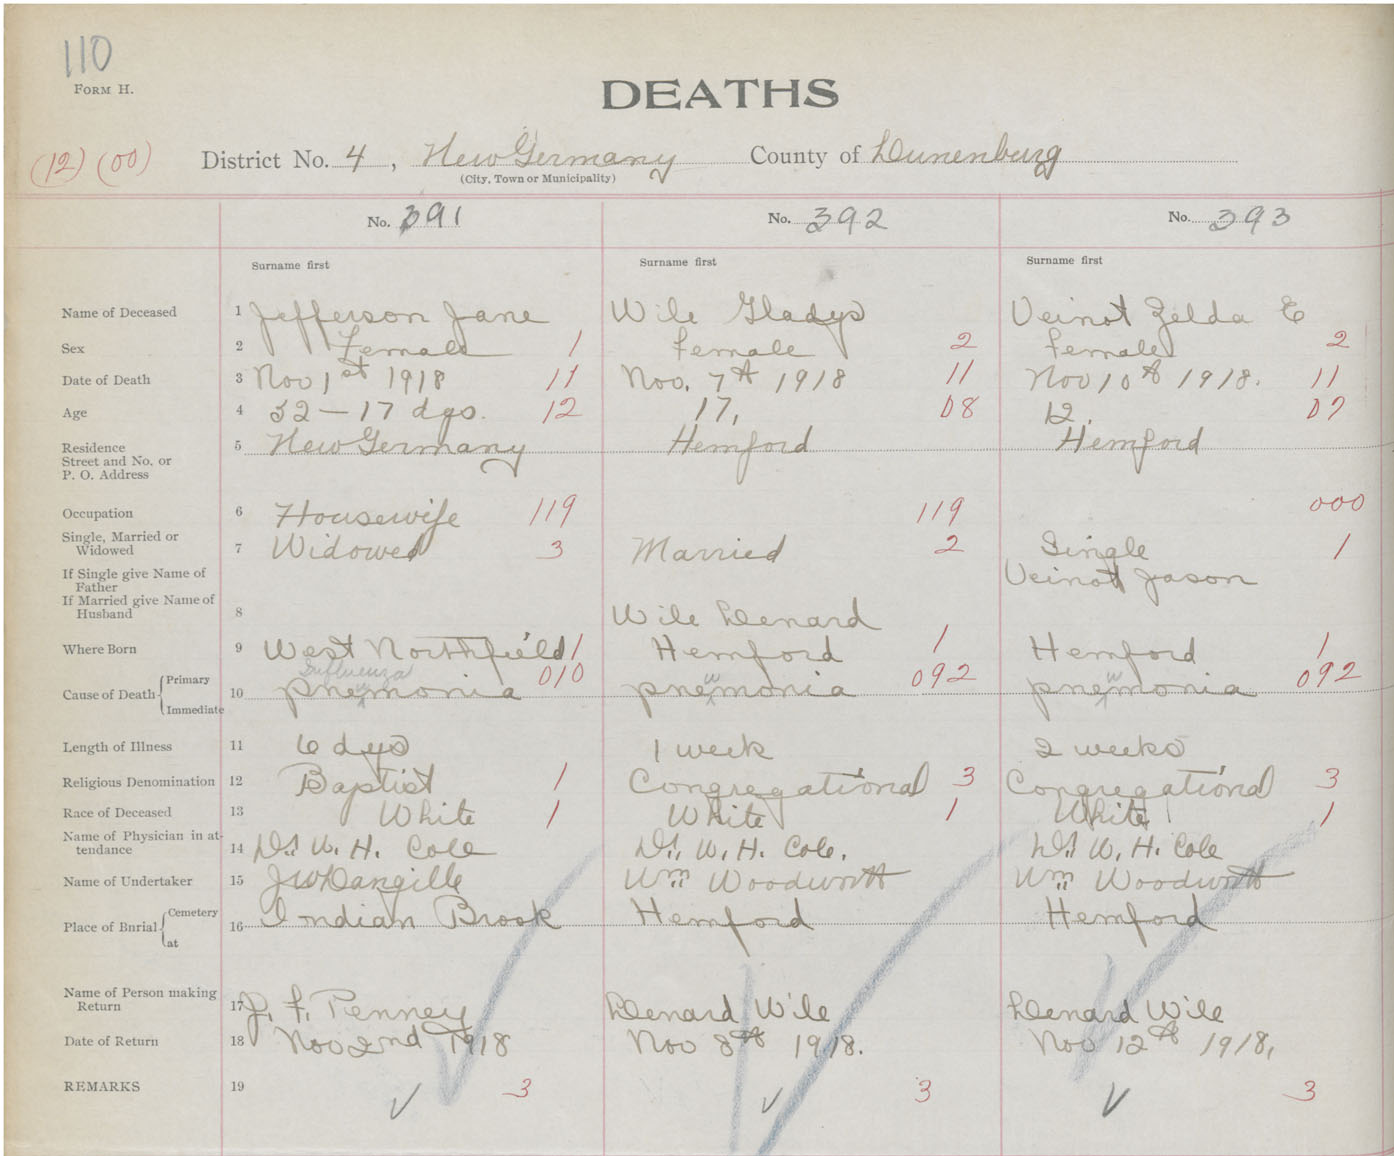 110
FORM H.
DEATHS
(12) (00) District No. 4, New Germany County of Lunenburg
(City, Town or Municipality)
No. 391 No. 392 No. 393
Surname first Surname first Surname first
Name of Deceased 1 Jefferson Jane Wile Gladys Veinot Zelda E
Sex 2 Female 1 Female 2 Female 2
Date of Death 3 Nov 1st 1918 11 Nov. 7th 1918 11 Nov 10th 1918. 11
Age 4 52 – 17 dys. 12 17, 08 12, 07
Residence 5 New Germany Hemford Hemford
Street and No. or
P. O. Address
Occupation 6 Housewife 119 119 000
Single, Married or
Widowed 7 Widowed 3 Married 2 Single 1
If Single give Name of
Father Veinot Jason
If Married give Name of
Husband 8 Wile Lenard
Where Born 9 West Northfield 1 Hemford 1 Hemford 1
Influenza 010 092 092
Cause of Death { Primary
10 pneumonia pneumonia pneumonia
Immediate
Length of Illness 11 6 dys 1 week 2 weeks
Religious Denomination 12 Baptist 1 Congregational 3 Congregational 3
Race of Deceased 13 White 1 White 1 White 1
Name of Physician in at-
tendance 14 Dr. W. H. Cole Dr. W. H. Cole. Dr. W. H. Cole
Name of Undertaker 15 J W Langille Wm Woodworth Wm Woodworth
Place of Bnrial { Cemetery 16 Indian Brook Hemford Hemford
at
Name of Person making
Return 17 J. F. Penney Lenard Wile Lenard Wile
Date of Return 18 Nov 2nd 1918 Nov 8th 1918. Nov 12th 1918,
REMARKS 19 3 3 3